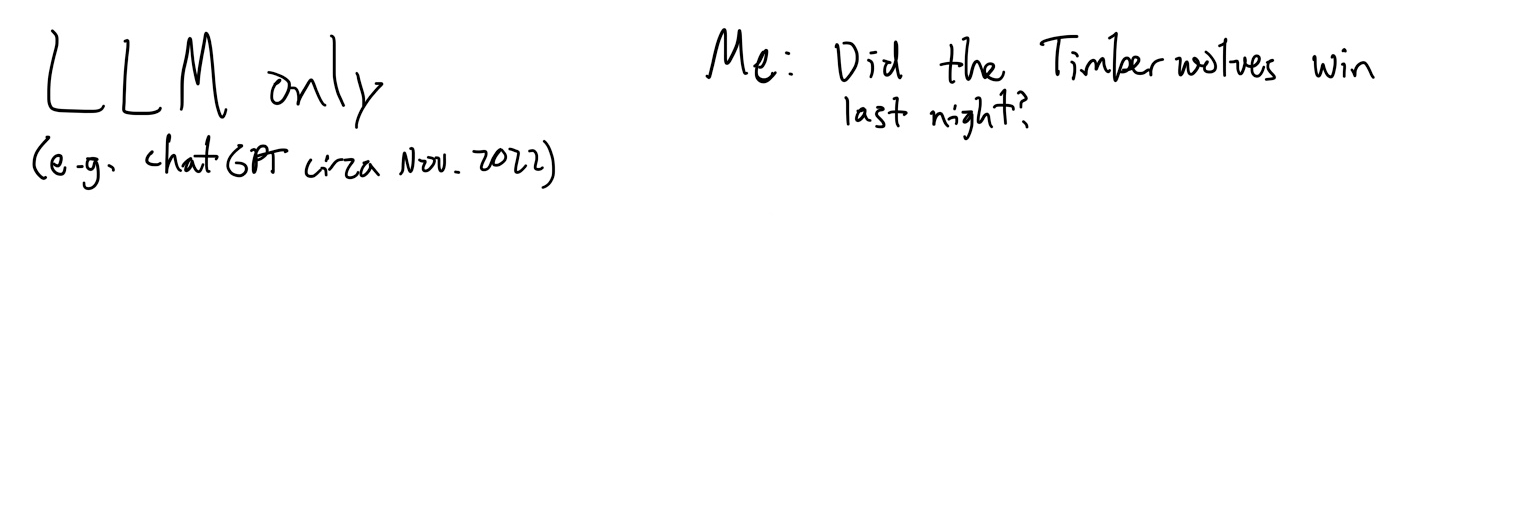 LLM only
(e.g. chatGPT circa Nov. 2022)
Me: Did the Timberwolves win
last night?